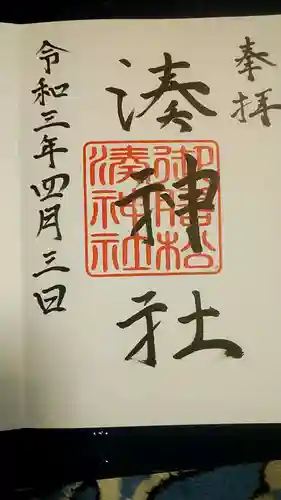 奉拝
湊神社
御勝松
湊神社
令和三年四月三日